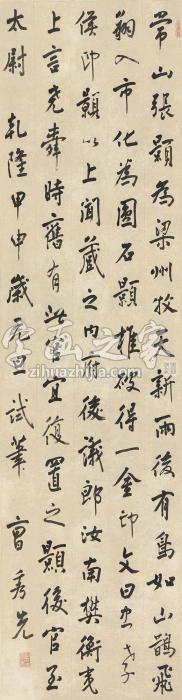 常山張顥為梁州牧天新雨後有鳥如山鵲飛
翔入市化為圓石顥推破得一金印文曰忠孝
侯印顥以上聞藏之內府後議郎汝南樊衡夷
上言堯舜時舊有此官宜復置之顥後官至
太尉 乾隆甲申歲元旦試筆 曹秀先
字画之家
www.zihuazhijia.com